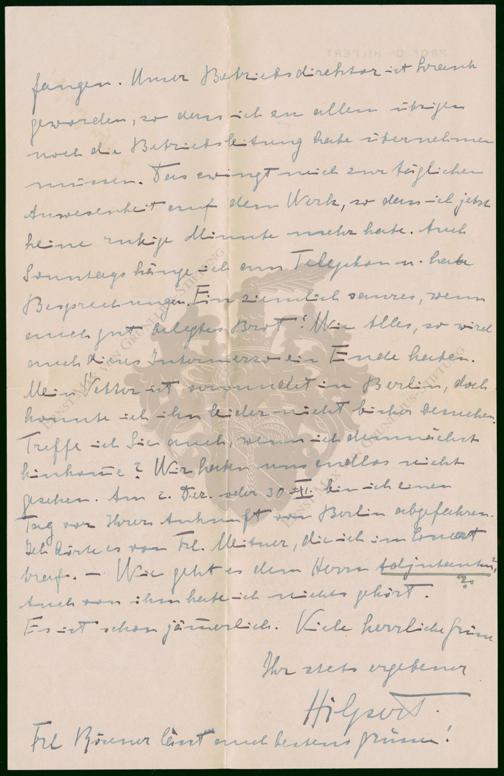 fangen. Unser Betriebsdirektor ist krank
geworden, so dass ich zu allem übrigen
noch die Betriebsleitung habe übernehmen
müssen. Das zwingt mich zur täglichen
Anwesenheit auf dem Werk, so dass ich jetzt
keine ruhige Minute mehr habe. Auch
Sonntags hänge ich am Telephon u. habe
Besprechungen. Ein ziemlich saures, wenn
auch gut belegtes Brot! Wie Alles, so wird
auch dieses Intermezzo ein Ende haben.
Mein Vetter ist verwundet in Berlin, doch
konnte ich ihn leider nicht bisher besuchen.
Treffe ich Sie auch, wenn ich demnächst
hinkomme? Wir haben uns endlos nicht
gesehen. Am 2. Dez. oder 30. XI. bin ich einen
Tag vor Ihrer Ankunft von Berlin abgefahren.
Ich hörte es von Frl. Meitner, die ich im Concert
traf. – Wie geht es dem Herrn Adjutanten?
Auch von ihm habe ich nichts gehört.
Es ist schon jämmerlich. Viele herzliche Grüsse
Ihr stets ergebener
Hilpert.
Frl. lässt auch bestens grüssen!
PROF. DR. HILPERT
ERNST VON